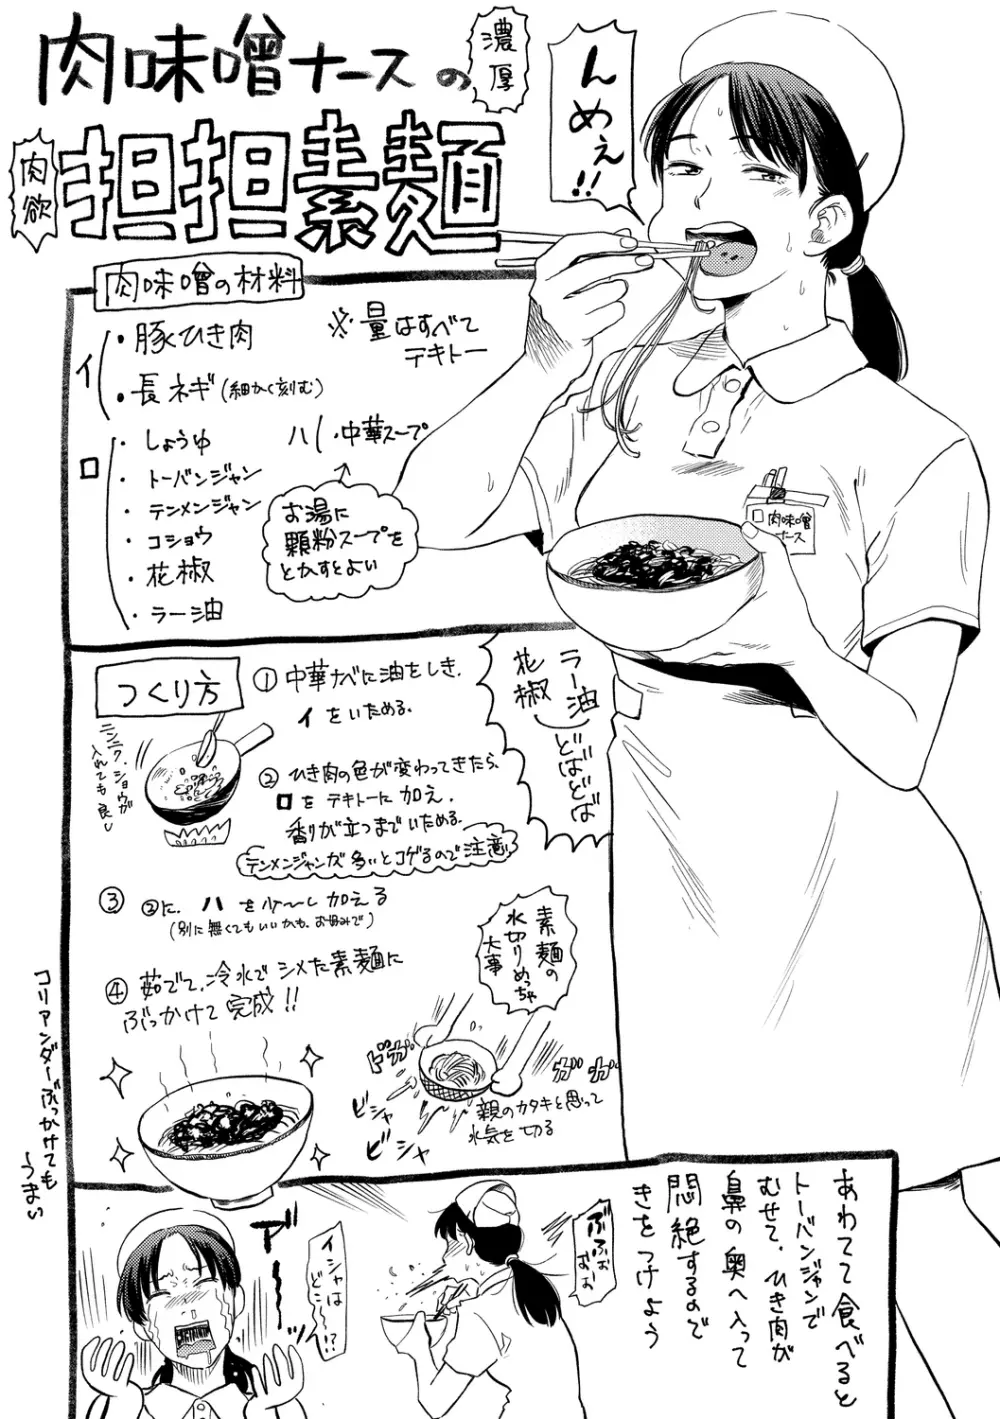 肉味噌ナースの
濃厚
肉欲
担担素麺
んめぇ!!
肉味噌の材料
イ
・豚ひき肉
・長ネギ(細かく刻む)
※量はすべて
テキトー
ロ
・しょうゆ
・トーバンジャン
・テンメンジャン
・コショウ
・花椒
・ラー油
ハ
・中華スープ
お湯に
顆粒スープを
とかすとよい
肉味噌
ナース
つくり方
①中華ナベに油をしき、
イをいためる。
ニンニク、ショウガ
入れても良し
②ひき肉の色が変わってきたら、
ロをテキトーに加え、
香りが立つまでいためる。
テンメンジャンが多いとコゲるので注意
ラー油
花椒
どばどば
③②に、ハを少〜し加える
(別に無くてもいいかも、お好みで)
④茹でて、冷水でシメた素麺に
ぶっかけて完成!!
素麺の
水切りめっちゃ
大事
ドガ
ガガ
ビシャ
ビシャ
親のカタキと思って
水気を切る
コリアンダーぶっかけても
〜うまい
あわてて食べると
トーバンジャンで
むせて、ひき肉が
鼻の奥へ入って
悶絶するので
きをつけよう
ぶふぉ
ぉぉ
イシャは
どこ〜!?
アーッ